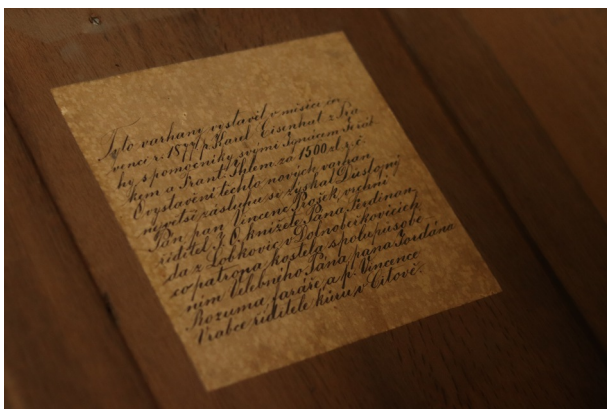 Tyto varhany vystavil v měsíci čer
venci r. 1877 p. Karel Eisenhut z Pra
hy s pomocníky svými Ignácem
kem a Frant. za 1500 zl. r. č.
O vystavení těchto nových varhan
největší zásluhu si získal Důstojný
Pán pan Vincenc Brožek vrchní
ředitel J. O. knížete Pána Ferdinan
da z Lobkovic v Dolnobeřkovicích
co patrona kostela spolupůsobe
ním Velebného Pána pana Jordána
Rozuma faráře a p. Vincence
Vrabce ředitele kůru v Citově.